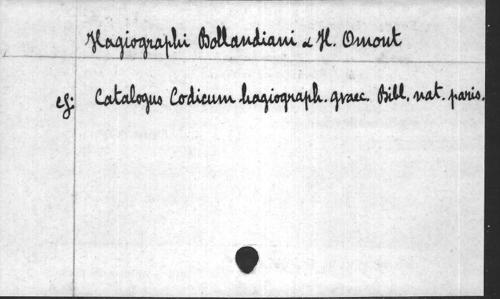 Hagiographi Bollandiani & H. Omont
cf: Catalogus Codicum hagiograph. graec. Bibl. nat. paris.